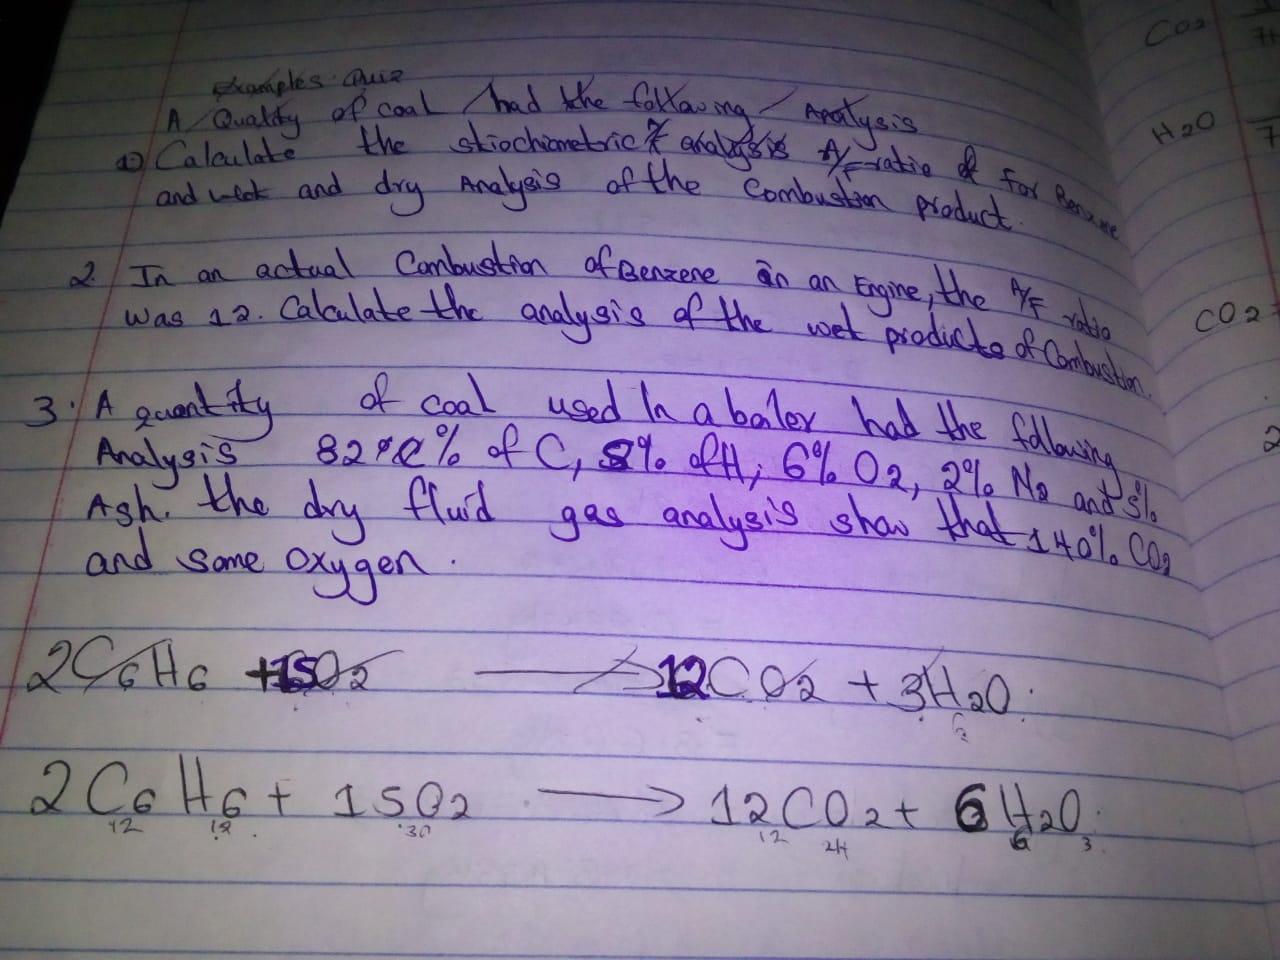 Examples Quiz
A Quality of coal had the following Analysis
1) Calculate the stiochiometric analysis A/F ratio of For Benzene
and wet and dry Analysis of the Combustion product.
2. In an actual Combustion of Benzene in an Engine, the A/F ratio
was 12. Calculate the analysis of the wet products of Combustion.
3. A quantity of coal used in a boiler had the following
Analysis 82% of C, 5% of H, 6% O2, 2% N2 and 5%
Ash. the dry fluid gas analysis show that 140% CO2
and some oxygen.
2C6H6 + 15O2 → 12CO2 + 3H2O.
6
2C6H6 + 15O2 → 12CO2 + 6H2O.
12 12 30 12 24 6 3
CO2
H2O
7
CO2
2